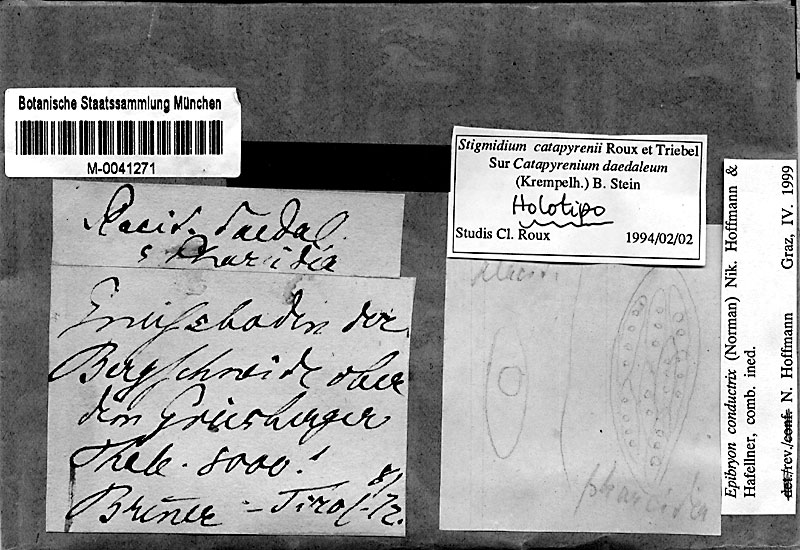 Botanische Staatssammlung München
M-0041271
Stigmidium catapyrenii Roux et Triebel
Sur Catapyrenium daedaleum
(Krempelh.) B. Stein
Holotipo
Studis Cl. Roux 1994/02/02
Placid. daedal.
c. Pharcidia
der
Bergschneide ober
dem Griesberger
Thale. 8000'
Brenner - Tirol 8/72.
Placid.
pharcidia
Epibryon conductrix (Norman) Nik. Hoffmann &
Hafellner, comb. ined.
det./rev./conf. N. Hoffmann Graz, IV. 1999